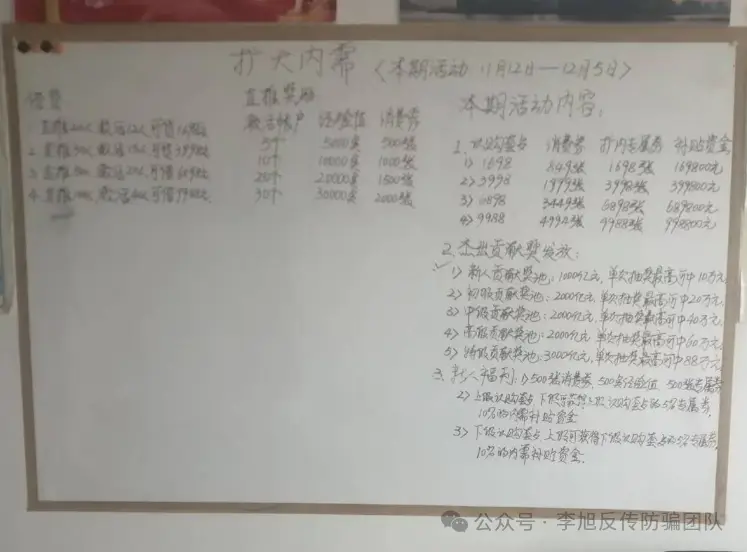 扩大内需〈本期活动 11月12日—12月5日〉
直推奖励
激活帐户 经验值 消费券
5个 5000条 500张
10个 10000条 1000张
20个 20000条 1500张
30个 30000条 2000张
本期活动内容:
1. 认购金占 消费券 扩内专属券 补贴资金
1) 1698 849张 1698张 169800元
2) 3998 1999张 3998张 399800元
3) 6898 3449张 6898张 689800元
4) 9988 4994张 9988张 998800元
2. 杰出贡献奖发放:
1) 新人贡献奖池:1000亿元,单次抽奖最高可中10万元
2) 初级贡献奖池:2000亿元,单次抽奖最高可中20万元
3) 中级贡献奖池:2000亿元,单次抽奖最高可中40万元
4) 高级贡献奖池:2000亿元,单次抽奖最高可中60万元
5) 特级贡献奖池:3000亿元,单次抽奖最高可中88万元
3. 新人福利:1) 500张消费券,500条经验值 500张专属券
2) 上级认购金占,下级可获得上级认购金占的5%专属券,
10%的内需补贴资金
3) 下级认购金占,上级可获得下级认购金占的5%专属券,
10%的内需补贴资金.
公众号·李旭反传防骗团队